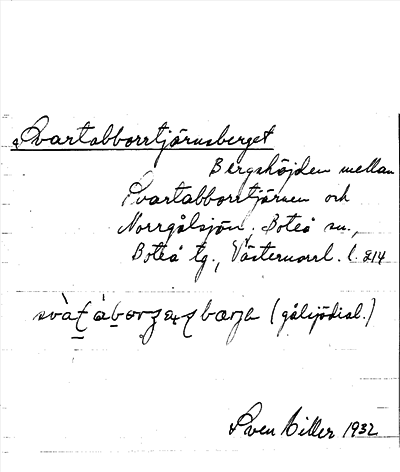 Svartabborrtjärnsberget
Bergshöjden mellan
Svartabborrtjärnen och
Norrgålsjön. Boteå sn.,
Boteå tg., Västernorrl. l.
(gålsjödial.)
Sven Hiller 1932